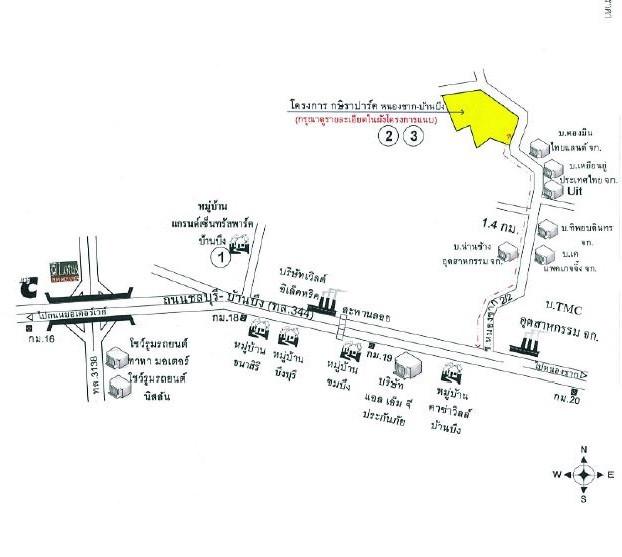 โครงการ กษิราปาร์ค หนองชาก-บ้านบึง
(กรุณาดูรายละเอียดในผังโครงการแนบ)
2 3
บ.คองมิน
ไทยแลนด์ จก.
บ.เหมียนยู่
ประเทศไทย จก.
Uit
หมู่บ้าน
แกรนด์เซ็นทรัลพาร์ค
บ้านบึง
1
1.4 กม.
บ.น่านช้าง
อุตสาหกรรม จก.
บ.ทิพยบดินทร
จก.
บ.เค
แพคเกจจิ้ง จก.
บริษัทเวิลด์
อิเล็คทริค
สะพานลอย
บ.TMC
อุตสาหกรรม จก.
ถนนชลบุรี- บ้านบึง (ทล.344)
ไปถนนมอเตอร์เวย์
กม.16
กม.18
กม.19
กม.20
ไปหนองชาก
ทล.3138
โชว์รูมรถยนต์
ทาทา มอเตอร์
โชว์รูมรถยนต์
นิสสัน
หมู่บ้าน
ธนาสิริ
หมู่บ้าน
บึงบุรี
หมู่บ้าน
ชมบึง
บริษัท
แอล เอ็ม จี
ประกันภัย
หมู่บ้าน
คาซ่าวิลล์
บ้านบึง
N
W E
S